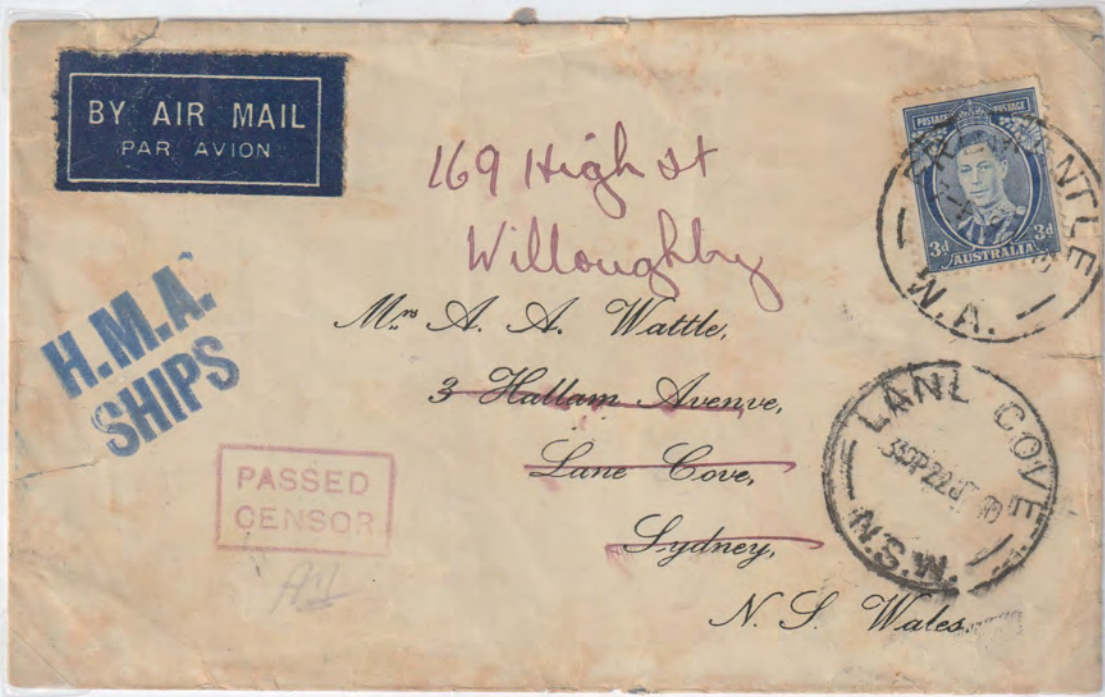 BY AIR MAIL
PAR AVION
POSTAGE POSTAGE
3d 3d
AUSTRALIA
FREMANTLE
W.A.
169 High St
Willoughby
Mrs A. A. Wattle,
3 Hallam Avenve,
Lane Cove,
Sydney,
N. S. Wales.
H.M.A.
SHIPS
PASSED
CENSOR
LANE COVE
N.S.W.